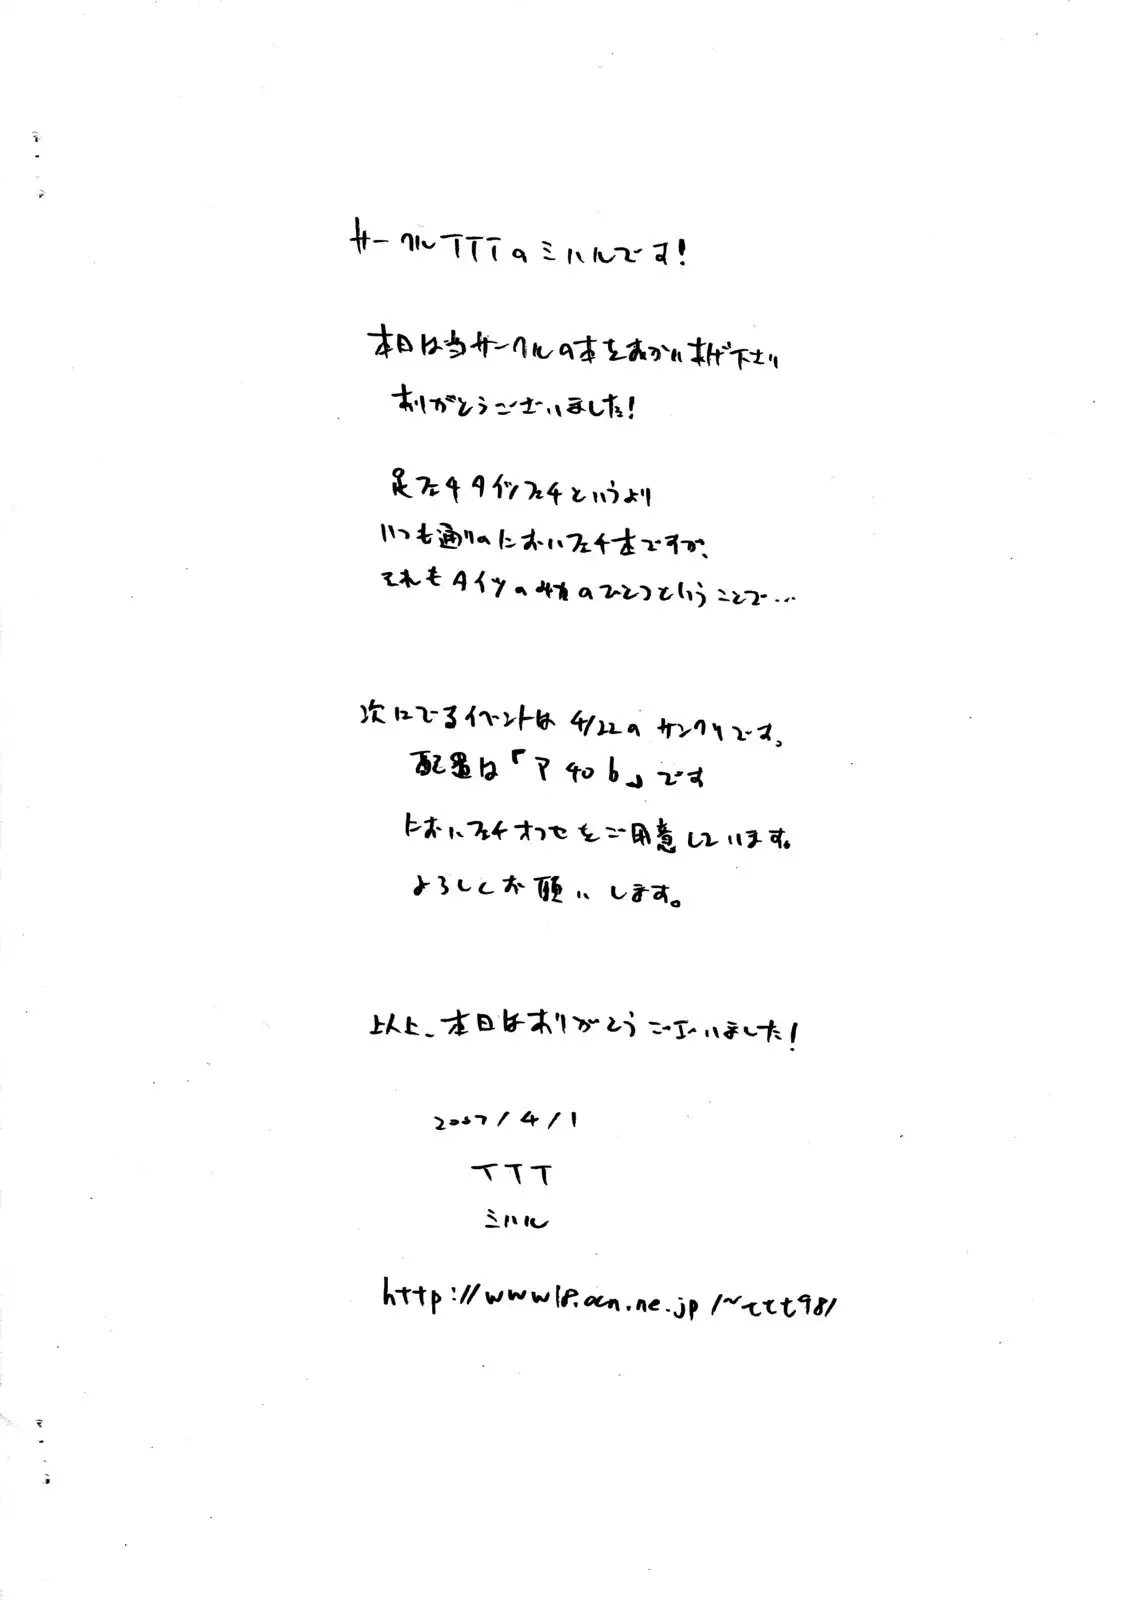 サークルTTTのミハルです!
本日は当サークルの本をおかい来げ下さり
ありがとうございました!
足フェチタイツフェチというより
いつも通りのにおいフェチ本ですが、
それもタイツの のひとつということで…
次にでるイベントは4/22のサンクリです。
配置は「ア40b」です
においフェチオフセをご用意しています。
よろしくお願いします。
以上、本日はありがとうございました!
2007/4/1
TTT
ミハル
http://www18.ocn.ne.jp/~ttt981